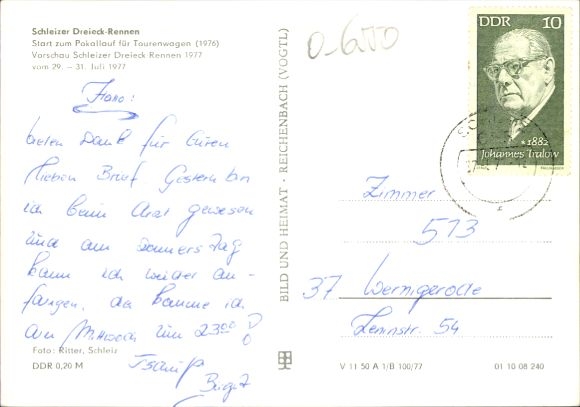 Schleizer Dreieck-Rennen
Start zum Pokallauf für Tourenwagen (1976)
Vorschau Schleizer Dreieck Rennen 1977
vom 29. – 31. Juli 1977
Hano:
besten Dank für Euren
lieben Brief. Gestern bin
ich beim Arzt gewesen
und am Donners Tag
kann ich wieder an-
fangen, da komme ich
am Mittwoch um 23⁰⁰ ?
Tschüß
Birgit
Foto: Ritter, Schleiz
DDR 0,20 M
BILD UND HEIMAT · REICHENBACH (VOGTL)
0-6500
DDR 10
*1882
Johannes Tralow
Zimmer
513
37 Wernigerode
Leninstr. 54
V 11 50 A 1/B 100/77
01 10 08 240